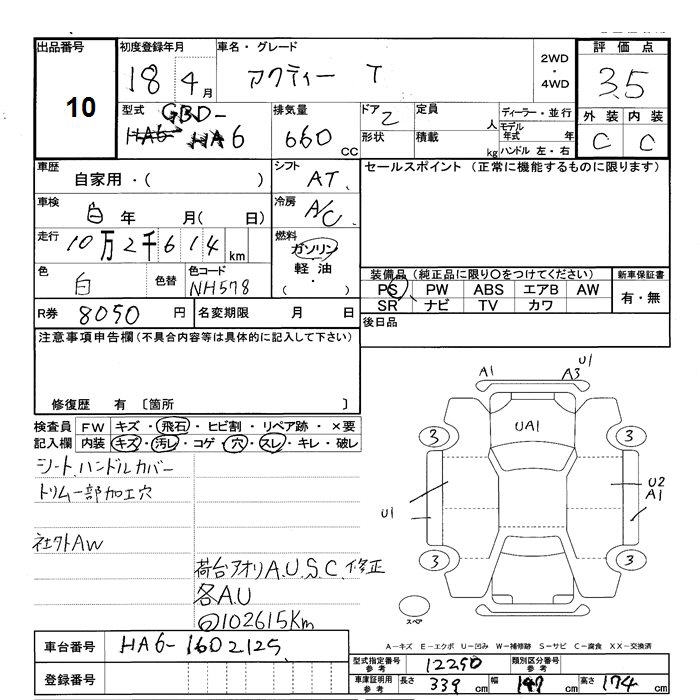 出品番号 初度登録年月 車名・グレード 2WD・4WD 評価点
10 18 4月 アクティー T 3.5
型式 GBD-HA6 排気量 660 CC ドア 2 定員 人 ディーラー・並行 外装 内装
形状 積載 kg モデル年式 年 C C
ハンドル 左・右
車歴 自家用・( ) シフト AT セールスポイント (正常に機能するものに限ります)
車検 白 年 月( 日) 冷房 A/C
走行 10万2千614 km 燃料 ガソリン 軽油・( )
色 白 色替 色コード NH578 装備品 (純正品に限り〇をつけてください) 新車保証書
PS PW ABS エアB AW 有・無
SR ナビ TV カワ
R券 8050 円 名変期限 月 日 後日品
注意事項申告欄 (不具合内容等は具体的に記入して下さい)
修復歴 有 〔箇所 〕
検査員 FW キズ・飛石・ヒビ割・リペア跡・×要
記入欄 内装 キズ・汚レ・コゲ・穴・スレ・キレ・破レ
シート、ハンドルカバー
トリム一部加工穴
社外AW
荷台アオリA.U.S.C.修正
各A.U
@102615Km
A1 A3 U1
UA1
3 3
U1 U2
A1
3 3
スペア
A-キズ E-エクボ U-凹み W-補修跡 S-サビ C-腐食 XX-交換済
車台番号 HA6-1602125
登録番号
型式指定番号 参考 12250 類別区分番号 参考
車庫証明用 参考 長さ 339 cm 幅 147 cm 高さ 174 cm